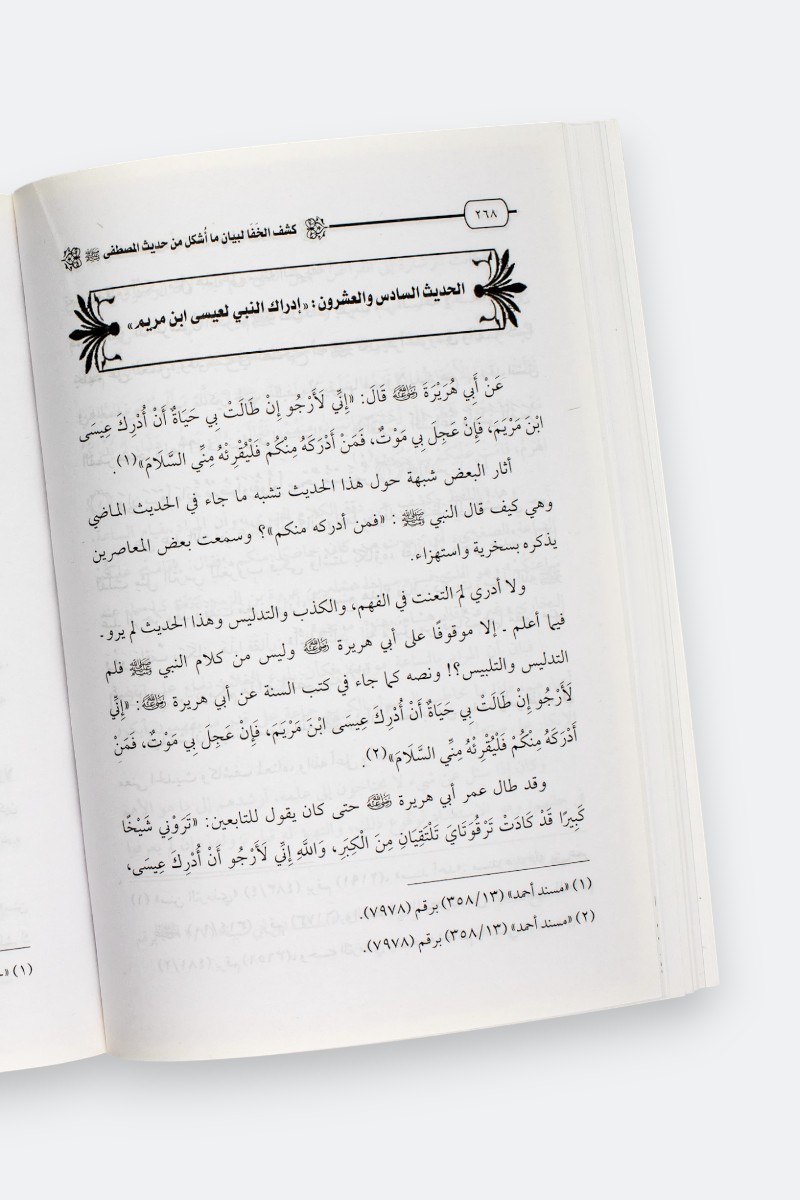 ٢٦٨
كشف الخَفَا لبيان ما أُشكل من حديث المصطفى ﷺ
الحديث السادس والعشرون: «إدراك النبي لعيسى ابن مريم»
عَنْ أَبِي هُرَيْرَةَ رَضِيَ اللَّهُ عَنْهُ قَالَ: «إِنِّي لَأَرْجُو إِنْ طَالَتْ بِي حَيَاةٌ أَنْ أُدْرِكَ عِيسَى
ابْنَ مَرْيَمَ، فَإِنْ عَجِلَ بِي مَوْتٌ، فَمَنْ أَدْرَكَهُ مِنْكُمْ فَلْيُقْرِئْهُ مِنِّي السَّلَامَ»(١).
أثار البعض شبهة حول هذا الحديث تشبه ما جاء في الحديث الماضي
وهي كيف قال النبي ﷺ : «فمن أدركه منكم»؟ وسمعت بعض المعاصرين
يذكره بسخرية واستهزاء.
ولا أدري لمَ التعنت في الفهم، والكذب والتدليس وهذا الحديث لم يرو ـ
فيما أعلم ـ إلا موقوفًا على أبي هريرة رَضِيَ اللَّهُ عَنْهُ وليس من كلام النبي ﷺ فلم
التدليس والتلبيس؟! ونصه كما جاء في كتب السنة عن أبي هريرة رَضِيَ اللَّهُ عَنْهُ: «إِنِّي
لَأَرْجُو إِنْ طَالَتْ بِي حَيَاةٌ أَنْ أُدْرِكَ عِيسَى ابْنَ مَرْيَمَ، فَإِنْ عَجِلَ بِي مَوْتٌ، فَمَنْ
أَدْرَكَهُ مِنْكُمْ فَلْيُقْرِئْهُ مِنِّي السَّلَامَ»(٢).
وقد طال عمر أبي هريرة رَضِيَ اللَّهُ عَنْهُ حتى كان يقول للتابعين: «تَرَوْنِي شَيْخًا
كَبِيرًا قَدْ كَادَتْ تَرْقُوَتَايَ تَلْتَقِيَانِ مِنَ الْكِبَرِ، وَاللَّهِ إِنِّي لَأَرْجُو أَنْ أُدْرِكَ عِيسَى،
(١) «مسند أحمد» (٣٥٨/١٣) برقم (٧٩٧٨).
(٢) «مسند أحمد» (٣٥٨/١٣) برقم (٧٩٧٨).
(١)